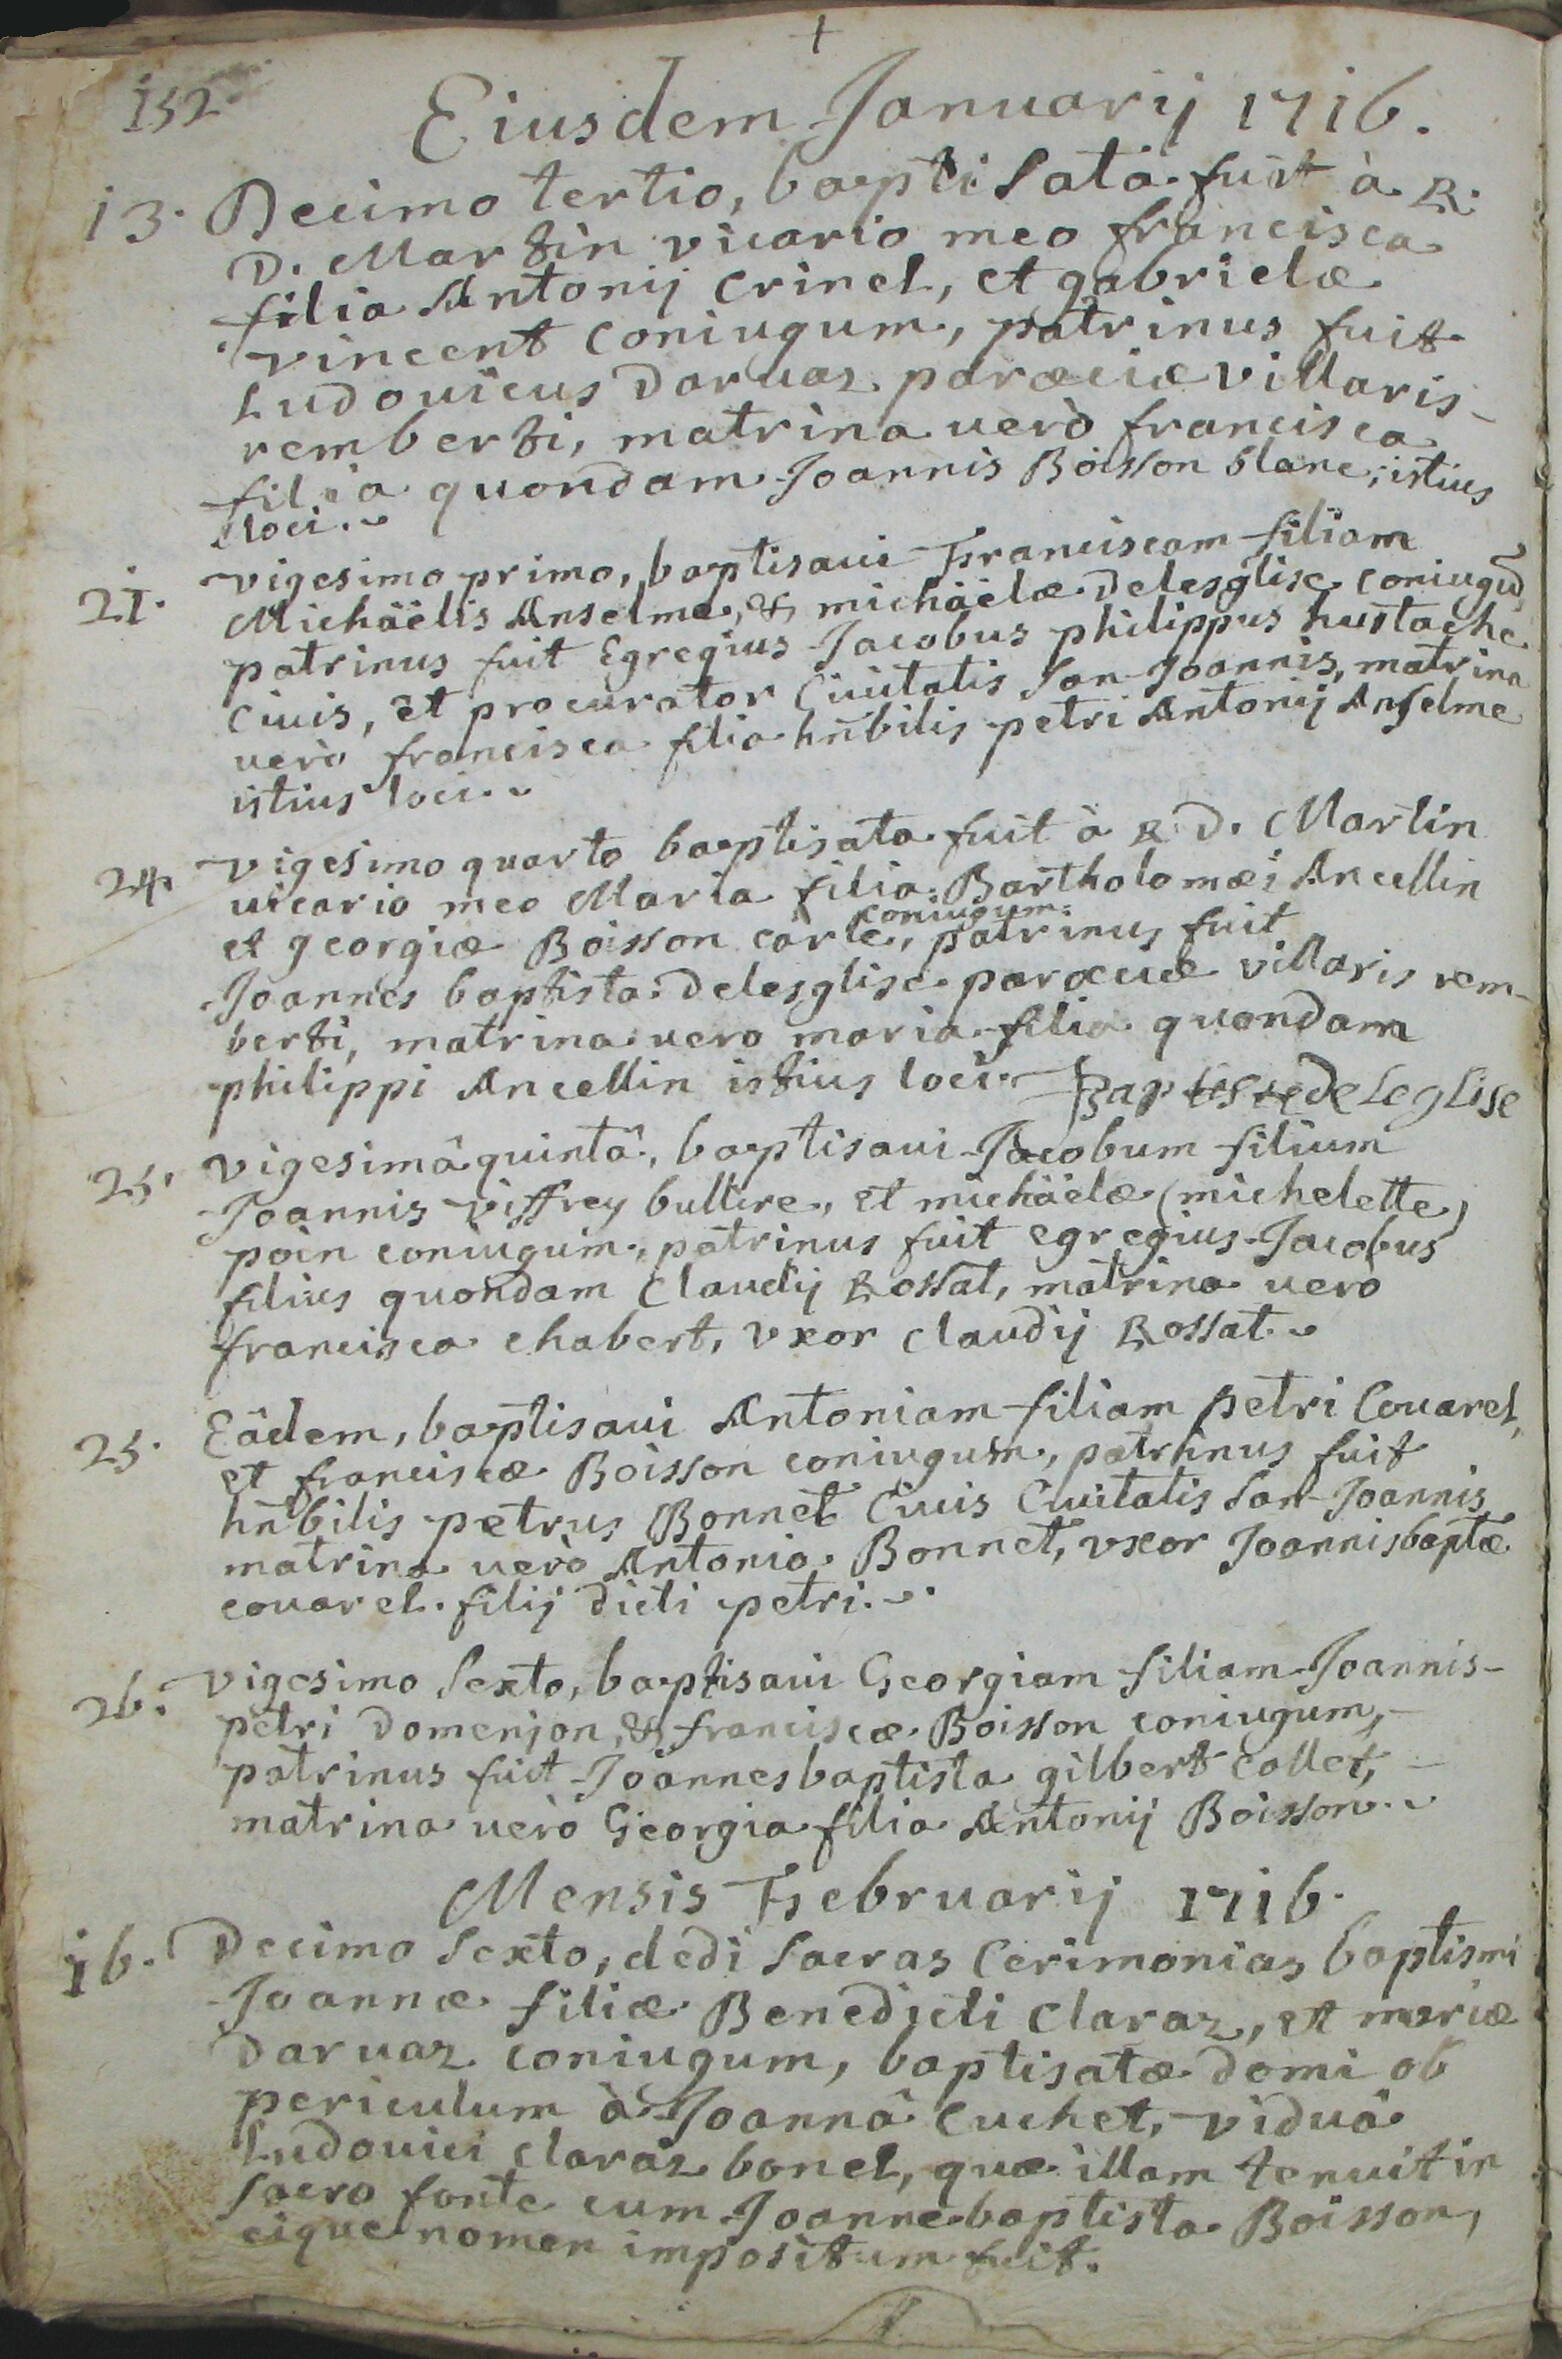 +
152
Eiusdem Januarij 1716.
13. Decimo tertio, baptisata fuit à R.
D. Martin vicario meo francisca
filia Antonij Crinel, et gabrielæ
vincent coniugum, patrinus fuit
Ludouicus Daruaz parœciæ villaris-
remberti, matrina uerò francisca
filia quondam Joannis Boisson blanc, istius
loci.
21. vigesimo primo, baptisaui Franciscam filiam
Michäelis Anselme, & michäelæ Delesglise coniugũ,
patrinus fuit Egregius Jacobus philippus hustache
Ciuis, et procurator Ciuitatis San-Joannis, matrina
uerò francisca filia hñbilis petri Antonij Anselme
istius loci.
24. vigesimo quarto baptisata fuit à R D. Martin
uicario meo Maria filia Bartholomæi Ancellin
et georgiæ Boisson carle, coniugum. patrinus fuit
Joannes baptista Delesglise parœciæ villaris rem-
berti, matrina uero maria filia quondam
philippi Ancellin istius loci. Baptistedeleglise
25. vigesimâ quintâ, baptisaui Jacobum filium
Joannis viffrey bulliere, et michäelæ (michelette)
poin coniugum, patrinus fuit egregius Jacobus
filius quondam Claudij Rossat, matrina uerò
francisca chabert, vxor claudij Rossat.
25. Eâdem, baptisaui Antoniam filiam petri Couarel,
et franciscæ Boisson coniugum, patrinus fuit
hñbilis petrus Bonnet Ciuis Ciuitatis San-Joannis
matrina uerò Antonia Bonnet, vxor Joannisbaptæ
couarel filij dicti petri.
26. vigesimo Sexto, baptisaui Georgiam filiam Joannis-
petri Domenjon, & franciscæ Boisson coniugum,
patrinus fuit Joannesbaptista gilbert collet,
matrina uerò Georgia filia Antonij Boisson.
Mensis Februarij 1716.
16. Decimo Sexto, dedi Sacras Cerimonias baptismi
Joannæ filiæ Benedicti Claraz, et mariæ
Daruaz coniugum, baptisatæ domi ob
periculum à Joannâ Cuchet, viduâ
Ludouici claraz bonel, quæ illam tenuit in
Sacro fonte cum Joannebaptista Boisson,
eique nomen impositum fuit.